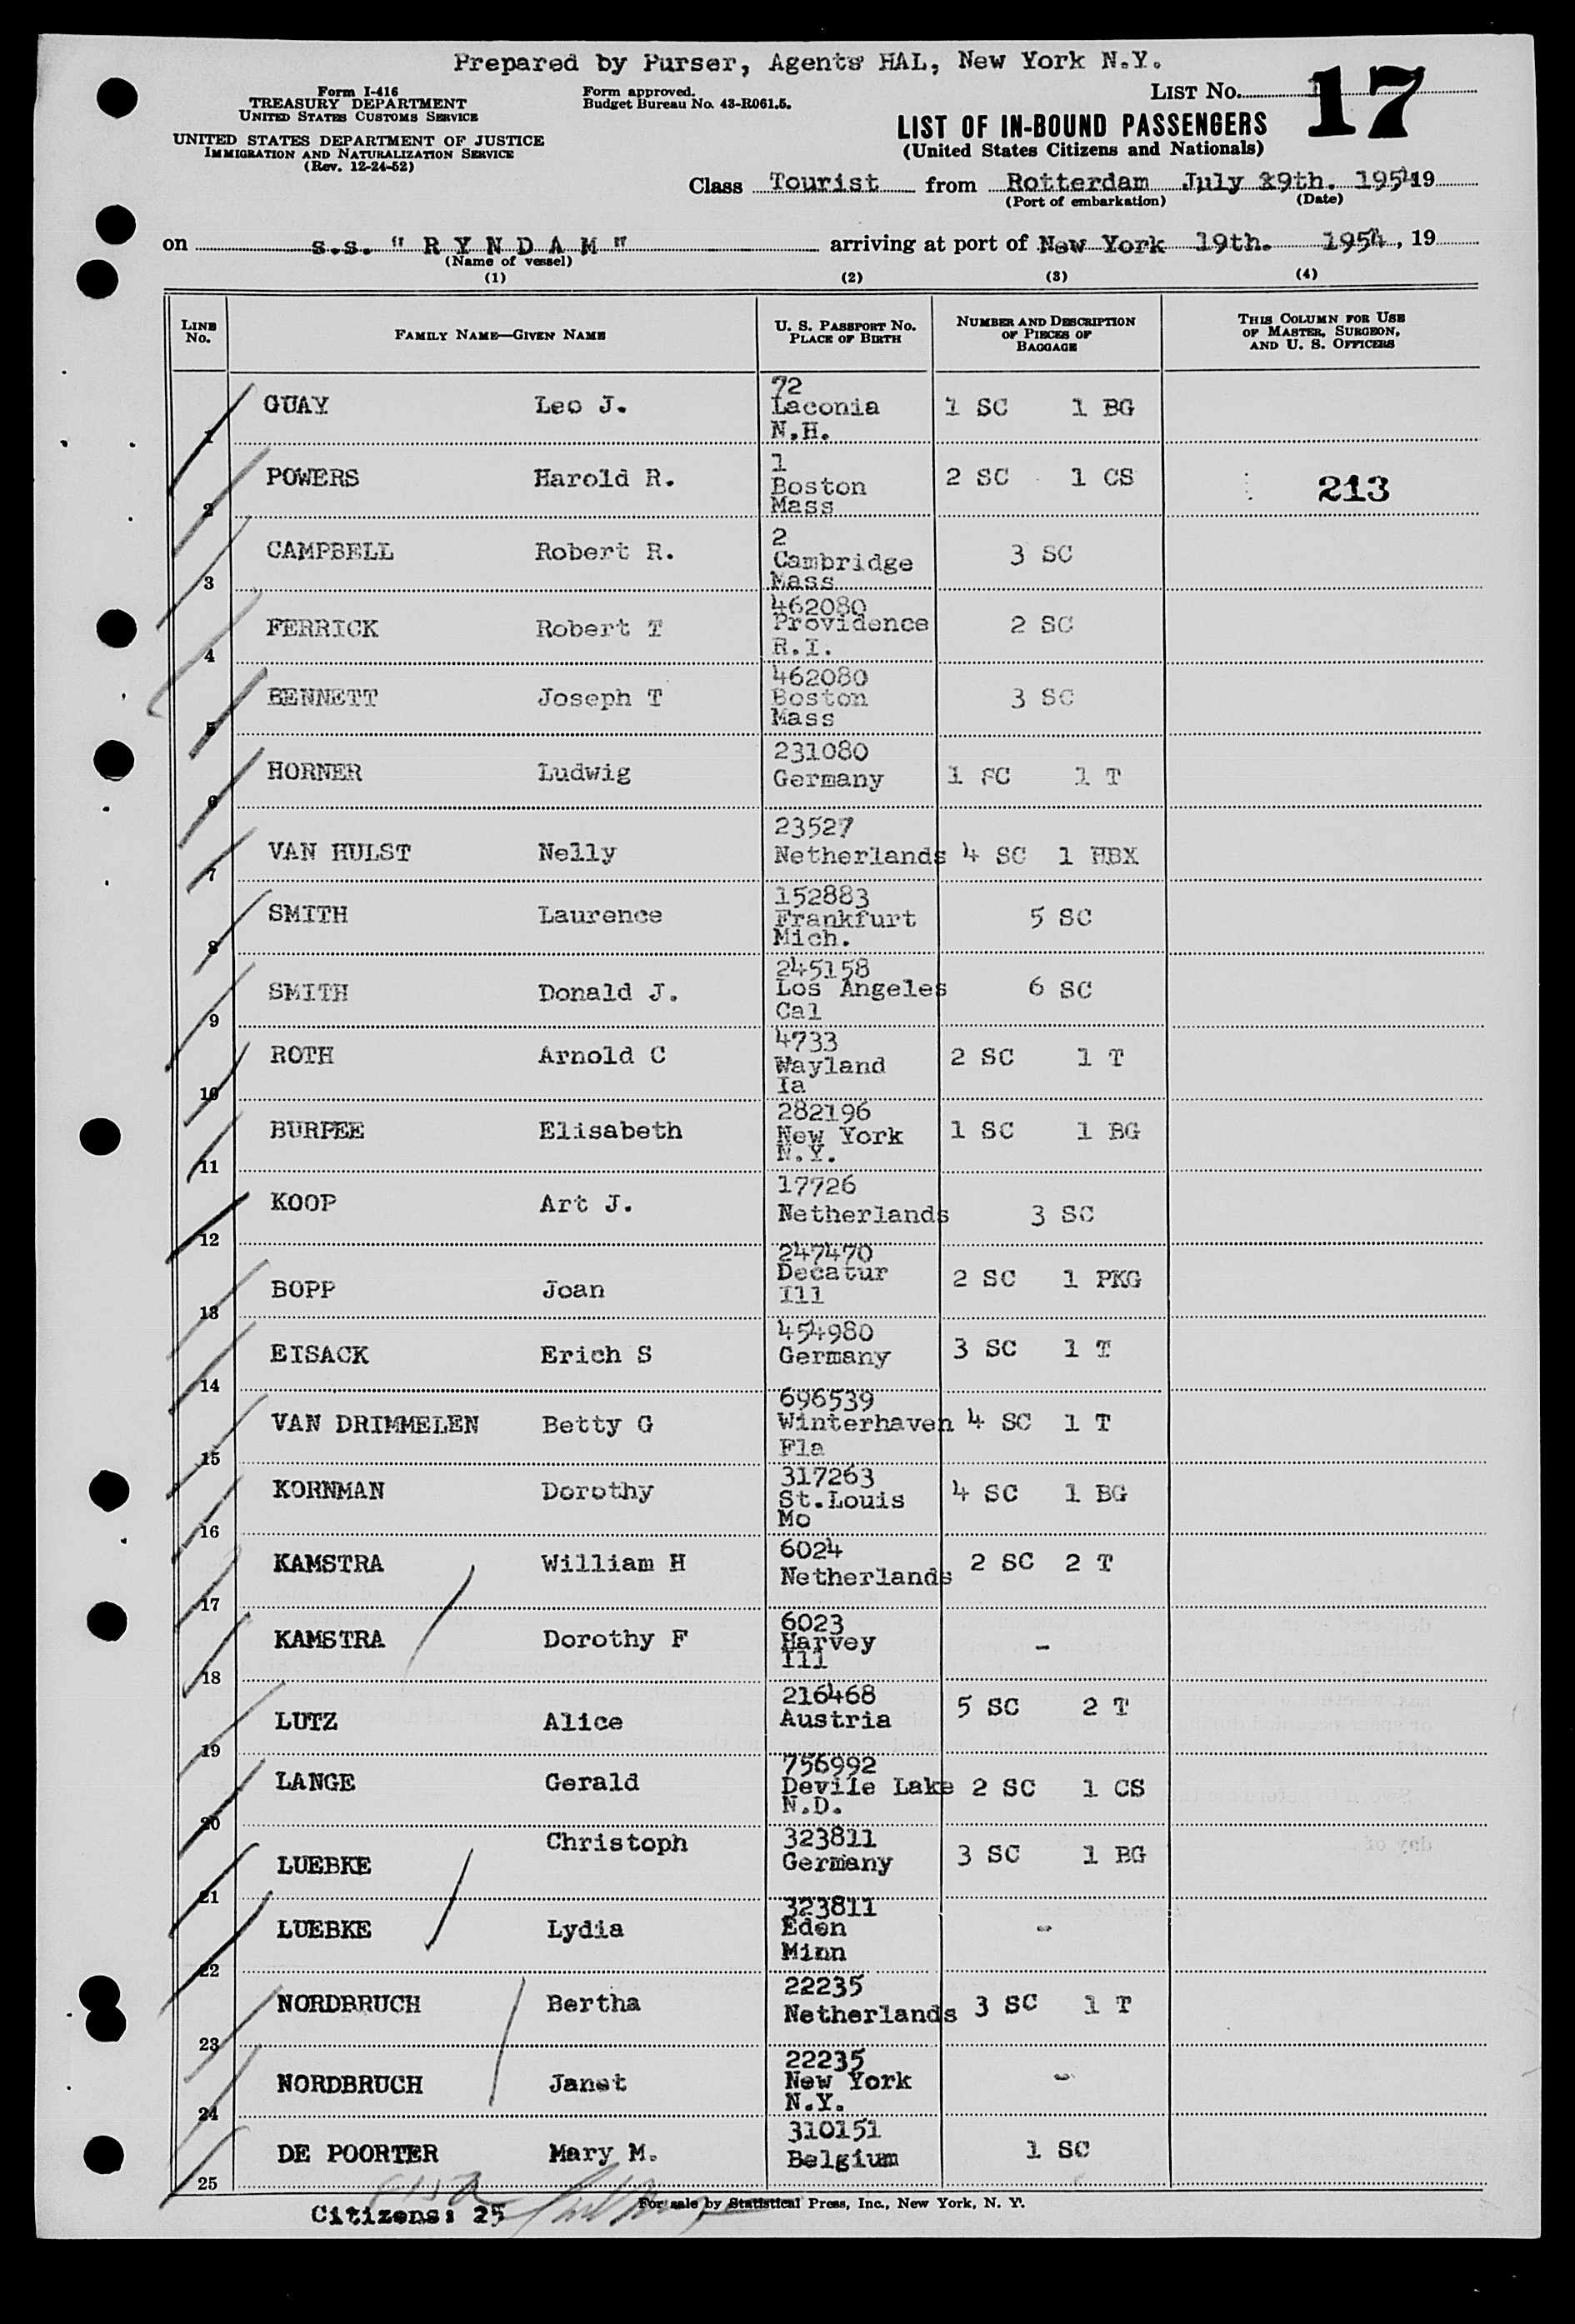 Prepared by Purser, Agents HAL, New York N.Y.
Form I-416
TREASURY DEPARTMENT
UNITED STATES CUSTOMS SERVICE
UNITED STATES DEPARTMENT OF JUSTICE
IMMIGRATION AND NATURALIZATION SERVICE
(Rev. 12-24-52)
Form approved.
Budget Bureau No. 43-R061.5.
LIST No. 17
LIST OF IN-BOUND PASSENGERS
(United States Citizens and Nationals)
Class Tourist from Rotterdam July 29th. 1954 19
(Port of embarkation) (Date)
on s.s. " R Y N D A M " arriving at port of New York 19th. 1954, 19
(Name of vessel)
(1) (2) (3) (4)
LINE No. FAMILY NAME—GIVEN NAME U. S. PASSPORT No. PLACE OF BIRTH NUMBER AND DESCRIPTION OF PIECES OF BAGGAGE THIS COLUMN FOR USE OF MASTER, SURGEON, AND U. S. OFFICERS
1 GUAY Leo J. 72 Laconia N.H. 1 SC 1 BG
2 POWERS Harold R. 1 Boston Mass 2 SC 1 CS 213
3 CAMPBELL Robert R. 2 Cambridge Mass 3 SC
4 FERRICK Robert T 462080 Providence R.I. 2 SC
5 BENNETT Joseph T 462080 Boston Mass 3 SC
6 HORNER Ludwig 231080 Germany 1 SC 1 T
7 VAN HULST Nelly 23527 Netherlands 4 SC 1 HBX
8 SMITH Laurence 152883 Frankfurt Mich. 5 SC
9 SMITH Donald J. 245158 Los Angeles Cal 6 SC
10 ROTH Arnold C 4733 Wayland Ia 2 SC 1 T
11 BURPEE Elisabeth 282196 New York N.Y. 1 SC 1 BG
12 KOOP Art J. 17726 Netherlands 3 SC
13 BOPP Joan 247470 Decatur Ill 2 SC 1 PKG
14 EISACK Erich S 454980 Germany 3 SC 1 T
15 VAN DRIMMELEN Betty G 696539 Winterhaven Fla 4 SC 1 T
16 KORNMAN Dorothy 317263 St.Louis Mo 4 SC 1 BG
17 KAMSTRA William H 6024 Netherlands 2 SC 2 T
18 KAMSTRA Dorothy F 6023 Harvey Ill -
19 LUTZ Alice 216468 Austria 5 SC 2 T
20 LANGE Gerald 756992 Devile Lake N.D. 2 SC 1 CS
21 LUEBKE Christoph 323811 Germany 3 SC 1 BG
22 LUEBKE Lydia 323811 Eden Minn -
23 NORDBRUCH Bertha 22235 Netherlands 3 SC 1 T
24 NORDBRUCH Janet 22235 New York N.Y. -
25 DE POORTER Mary M. 310151 Belgium 1 SC
Citizens: 25
For sale by Statistical Press, Inc., New York, N. Y.